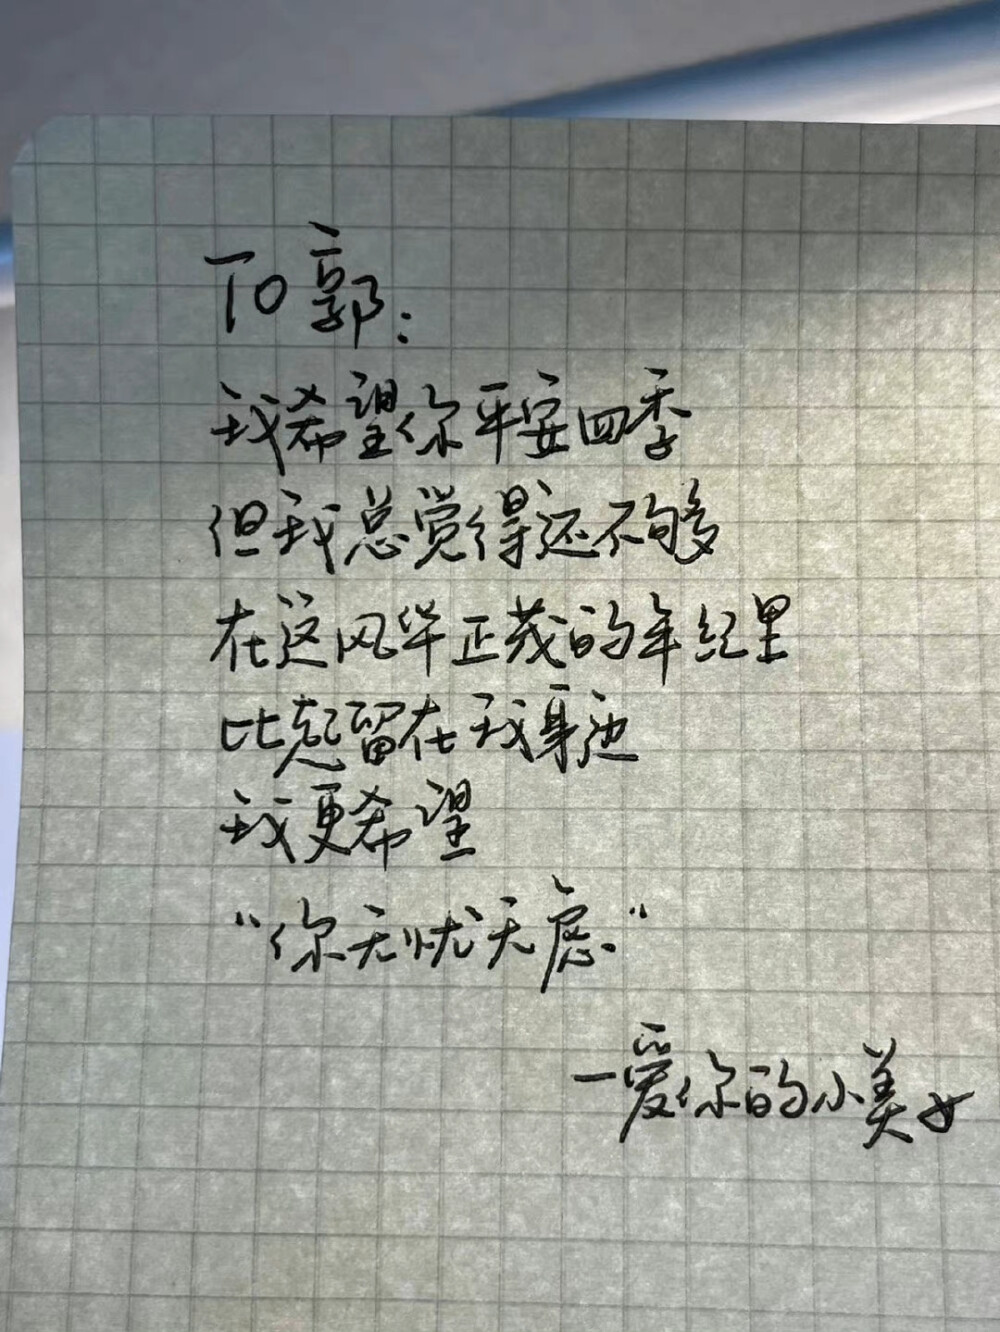 To 郭：
我希望你平安四季
但我总觉得还不够
在这风华正茂的年纪里
比起留在我身边
我更希望
“你无忧无虑.”
—爱你的小美女